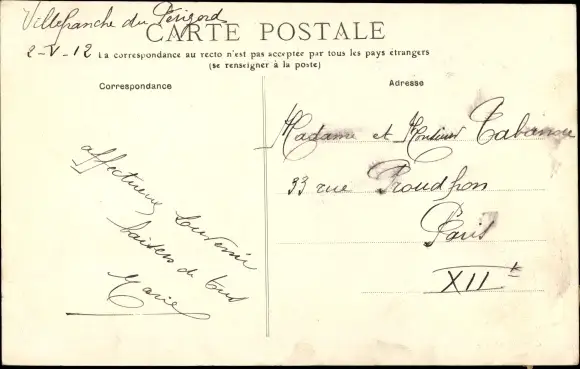 Villefranche du Périgord
2-V-12
CARTE POSTALE
La correspondance au recto n'est pas acceptée par tous les pays étrangers
(se renseigner à la poste)
Correspondance
affectueux souvenir
baisers de tous
Marie
Adresse
Madame et Monsieur
33 rue Proudhon
Paris
XIIe